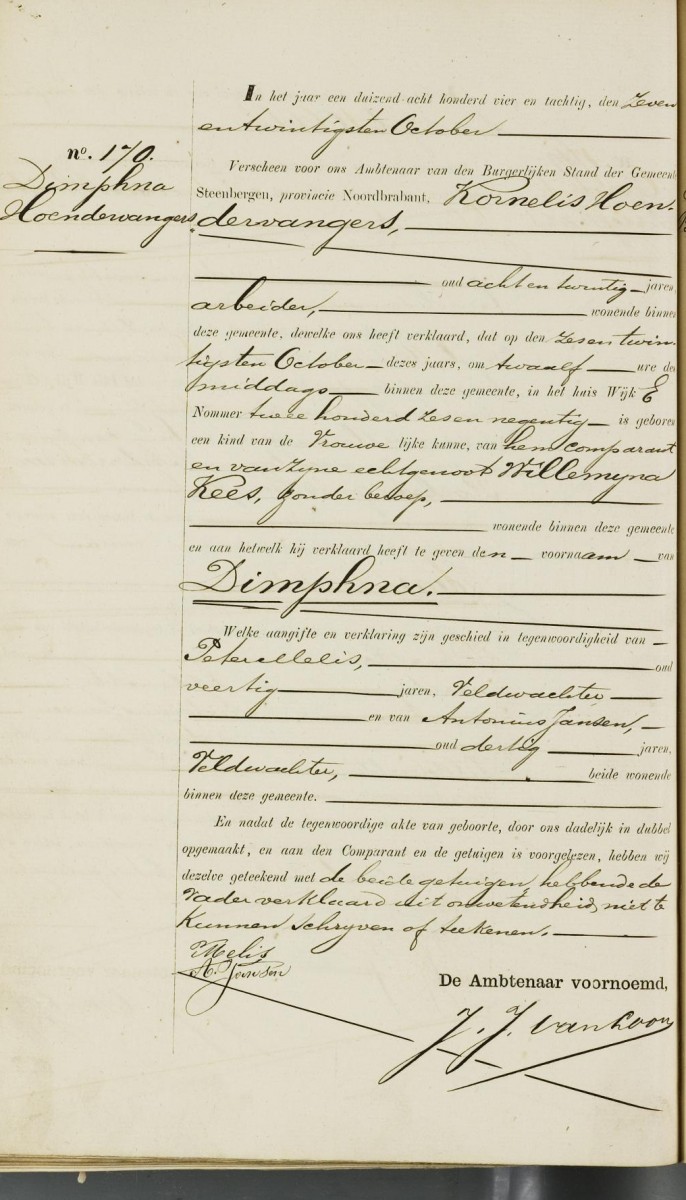 In het jaar een duizend acht honderd vier en tachtig, den zeven
en twintigsten October
no. 170.
Dimphna
Hoendervangers.
Verscheen voor ons Ambtenaar van den Burgerlijken Stand der Gemeente
Steenbergen, provincie Noordbrabant, Kornelis Hoen-
dervangers,
oud acht en twintig jaren,
arbeider, wonende binnen
deze gemeente, dewelke ons heeft verklaard, dat op den zes en twin-
tigsten October dezes jaars, om twaalf ure des
middags binnen deze gemeente, in het huis Wijk E
Nommer twee honderd zes en negentig is geboren
een kind van de Vrouwe lijke kunne, van hem comparant
en van zijne echtgenoot Willemyna
Kees, zonder beroep,
wonende binnen deze gemeente
en aan hetwelk hij verklaard heeft te geven den voornaam van
Dimphna.
Welke aangifte en verklaring zijn geschied in tegenwoordigheid van
Peter Melis, oud
veertig jaren, Veldwachter
en van Antonius Jansen,
oud dertig jaren,
Veldwachter, beide wonende
binnen deze gemeente.
En nadat de tegenwoordige akte van geboorte, door ons dadelijk in dubbel
opgemaakt, en aan den Comparant en de getuigen is voorgelezen, hebben wij
dezelve geteekend met de beide getuigen, hebbende de
Vader verklaard uit onwetendheid, niet te
kunnen schryven of teekenen.
P Melis
A. Jansen
De Ambtenaar voornoemd,
J. J. van Loon